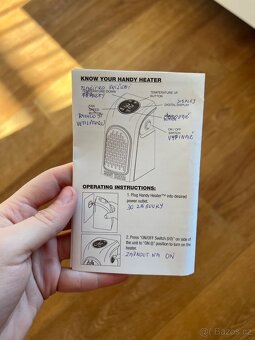 KNOW YOUR HANDY HEATER
TEMPERATURE DOWN
BUTTON
TEMPERATURE UP
BUTTON
DIGITAL DISPLAY
FAN
SPEED
ON / OFF
SWITCH
VYPÍNAČ
OPERATING INSTRUCTIONS:
1. Plug Handy Heater™ into desired
power outlet.
DO ZÁSUVKY
2. Press "ON/OFF Switch (I/0)" on side
of the unit to "ON (I)
position to turn on the
heater.
ZAPNOUT NA ON
Sbazar.cz